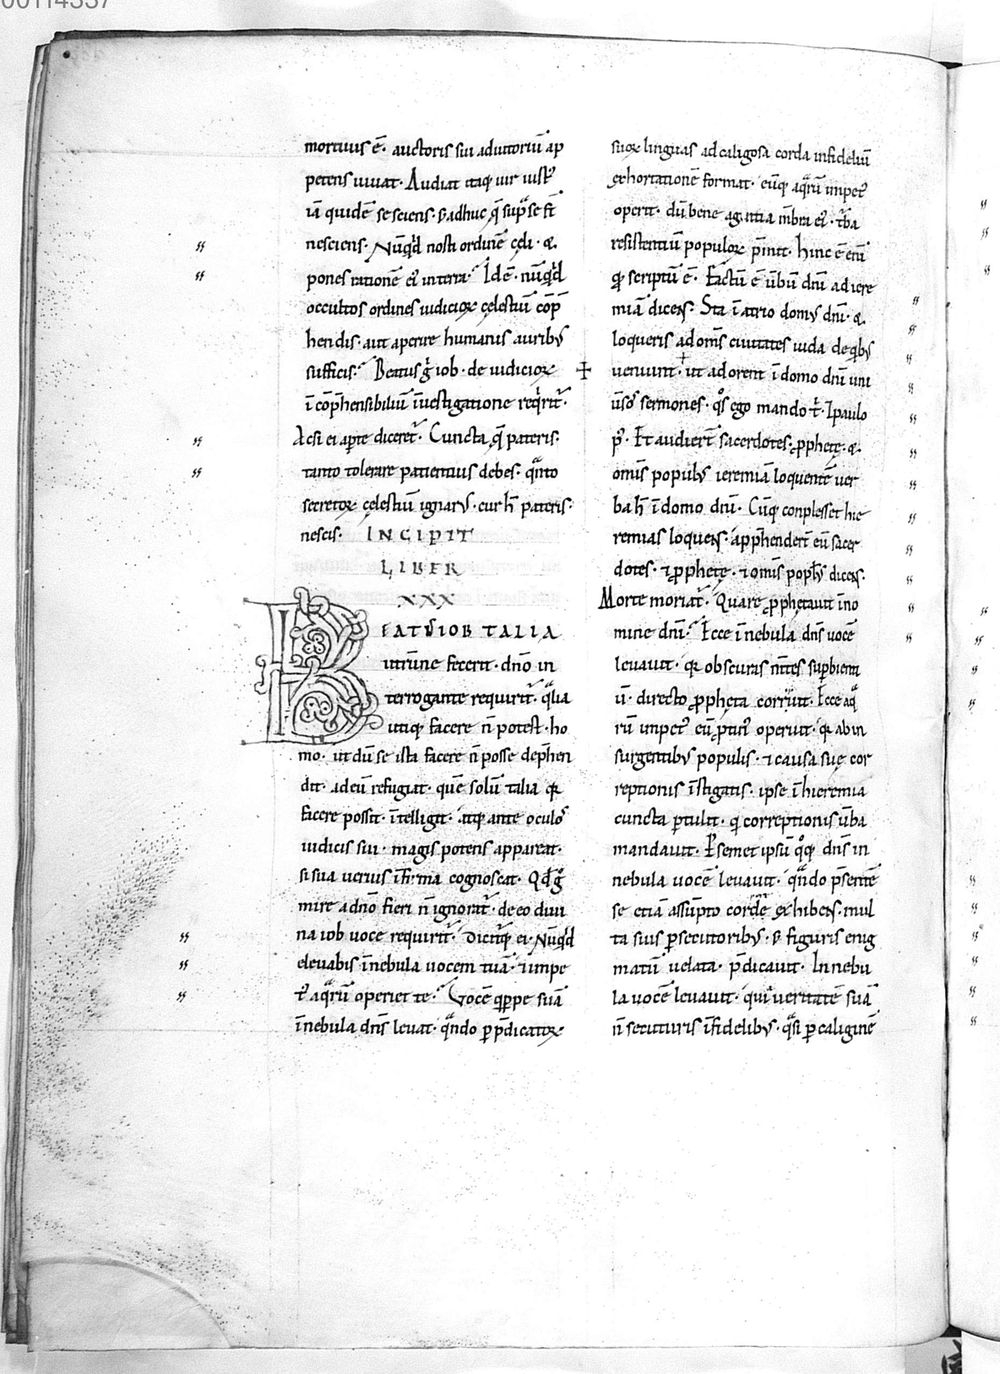 00114337
mortuus ē· auctoris sui adiutoriū ap
petens uiuat· Audiat itaq; uir iust᷒
iā quidē se sciens· s; adhuc q̄ sup̄ se st̄
nesciens· Nūqd nosti ordinē cęli· &
pones rationē ei᷒ in terra? Id ē· nūqd
occultos ordines iudicioꝝ cęlestiū cōp̄
hendis· aut aperire humanis aurib᷒
sufficis? Beatus g̊ iob· de iudicioꝝ
īcōp̄hensibiliū īuestigatione reqͥrit᷑·
Acsi ei apte diceret᷑· Cuncta q̄ pateris·
tanto tolerare patientius debes· qͣnto
secretoꝝ cęlestiū ignar᷒· cur h̄ pateris·
nescis· INCIPIT
LIBER
XXX
BEATVS IOB TALIA
utrūne fecerit· dn̄o in
terrogante requirit᷑· qͣlia
utiq; facere n̄ potest· ho
mo· ut dū se ista facere n̄ posse dep̄hen
dit· ad eū refugiat· quē solū talia q;
facere possit· ītelligit· atq; ante oculo᷒
iudicis sui· magis potens appareat·
si sua uerius īfirma cognoscat· Qd g̊
mire a dn̄o fieri n̄ ignorat᷑· de eo diui
na iob uoce requirit᷑· Dicitq; ei· Nūqd
eleuabis ī nebula uocem tuā· ⁊ impe
t᷒ aqͣrū operiet te? Vocē qͥppe suā
ī nebula dn̄s leuat· qͣndo p p̄dicatoꝝ
suoꝝ linguas ad caligosa corda infideliū
exhortationē format· eūq; aqͣrū impet᷒
operit· dū bene agentia mēbra ei᷒· tͬba
resistentiū populoꝝ p̄mit· hinc ē enī
qd scriptū ē· Factū ē ūbū dn̄i ad iere
miā dicens· Sta ī atrio dom᷒ dn̄i· &
loqueris ad oms̄ ciuitates iuda de qͥb᷒
ueniunt· ut adorent ī domo dn̄i uni
ūsos sermones· qͦs ego mando t̄· Ipaulo
p᷒· Et audiert̄ sacerdotes· ꝓphetę· &
omīs popul᷒ ieremiā loquentē uer
ba h̄ ī domo dn̄i· Cūq; conplesset hie
remias loquens· app̄henderт̄ eū sacer
dotes· ⁊ ꝓphetę· ⁊ omīs popul᷒ dicens·
Morte moriat᷑· Quare ꝓphetauit ī no
mine dn̄i? Ecce ī nebula dn̄s uocē
leuauit· qͥ obscuras m̄tes supbienti
ū· directo ꝓpheta corripuit· Ecce aqͣ
rū impet᷒ eū ꝓtin᷒ operuit· qͥ ab in
surgentib᷒ populis· ⁊ causa suę cor
reptionis īstigatis· ipse ī hieremia
cuncta ptulit· qͥ correptionis ūba
mandauit· P semet ipsū qͦq; dn̄s in
nebula uocē leuauit· qͣndo p̄sentē
se etiā assūpto corde exhibens· mul
ta suis psecutorib᷒· s; figuris enig
matū uelata· p̄dicauit· In nebu
la uocē leuauit· qui ueritatē suā
n̄ secuturis īfidelib᷒· qͣsi p caliginē